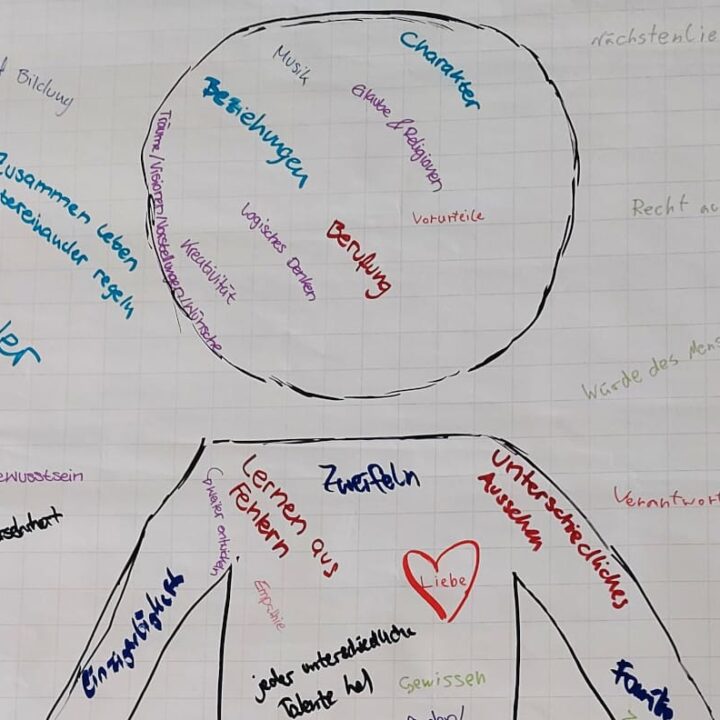 Nächstenlie
Bildung
Musik
Charakter
Beziehungen
Glaube & Religionen
Träume/Visionen/Vorstellungen/Wünsche
Zusammen leben
tereinander regeln
Recht au
Logisches Denken
Vorurteile
Berufung
Kreativität
Würde des Mens
ewusstsein
Lernen aus
Fehlern
Zweifeln
Unterschiedliches
Aussehen
Verantwort
weiter entwickeln
Liebe
Empathie
Einzigartigkeit
jeder unterschiedliche
Talente hat
Gewissen
Famili